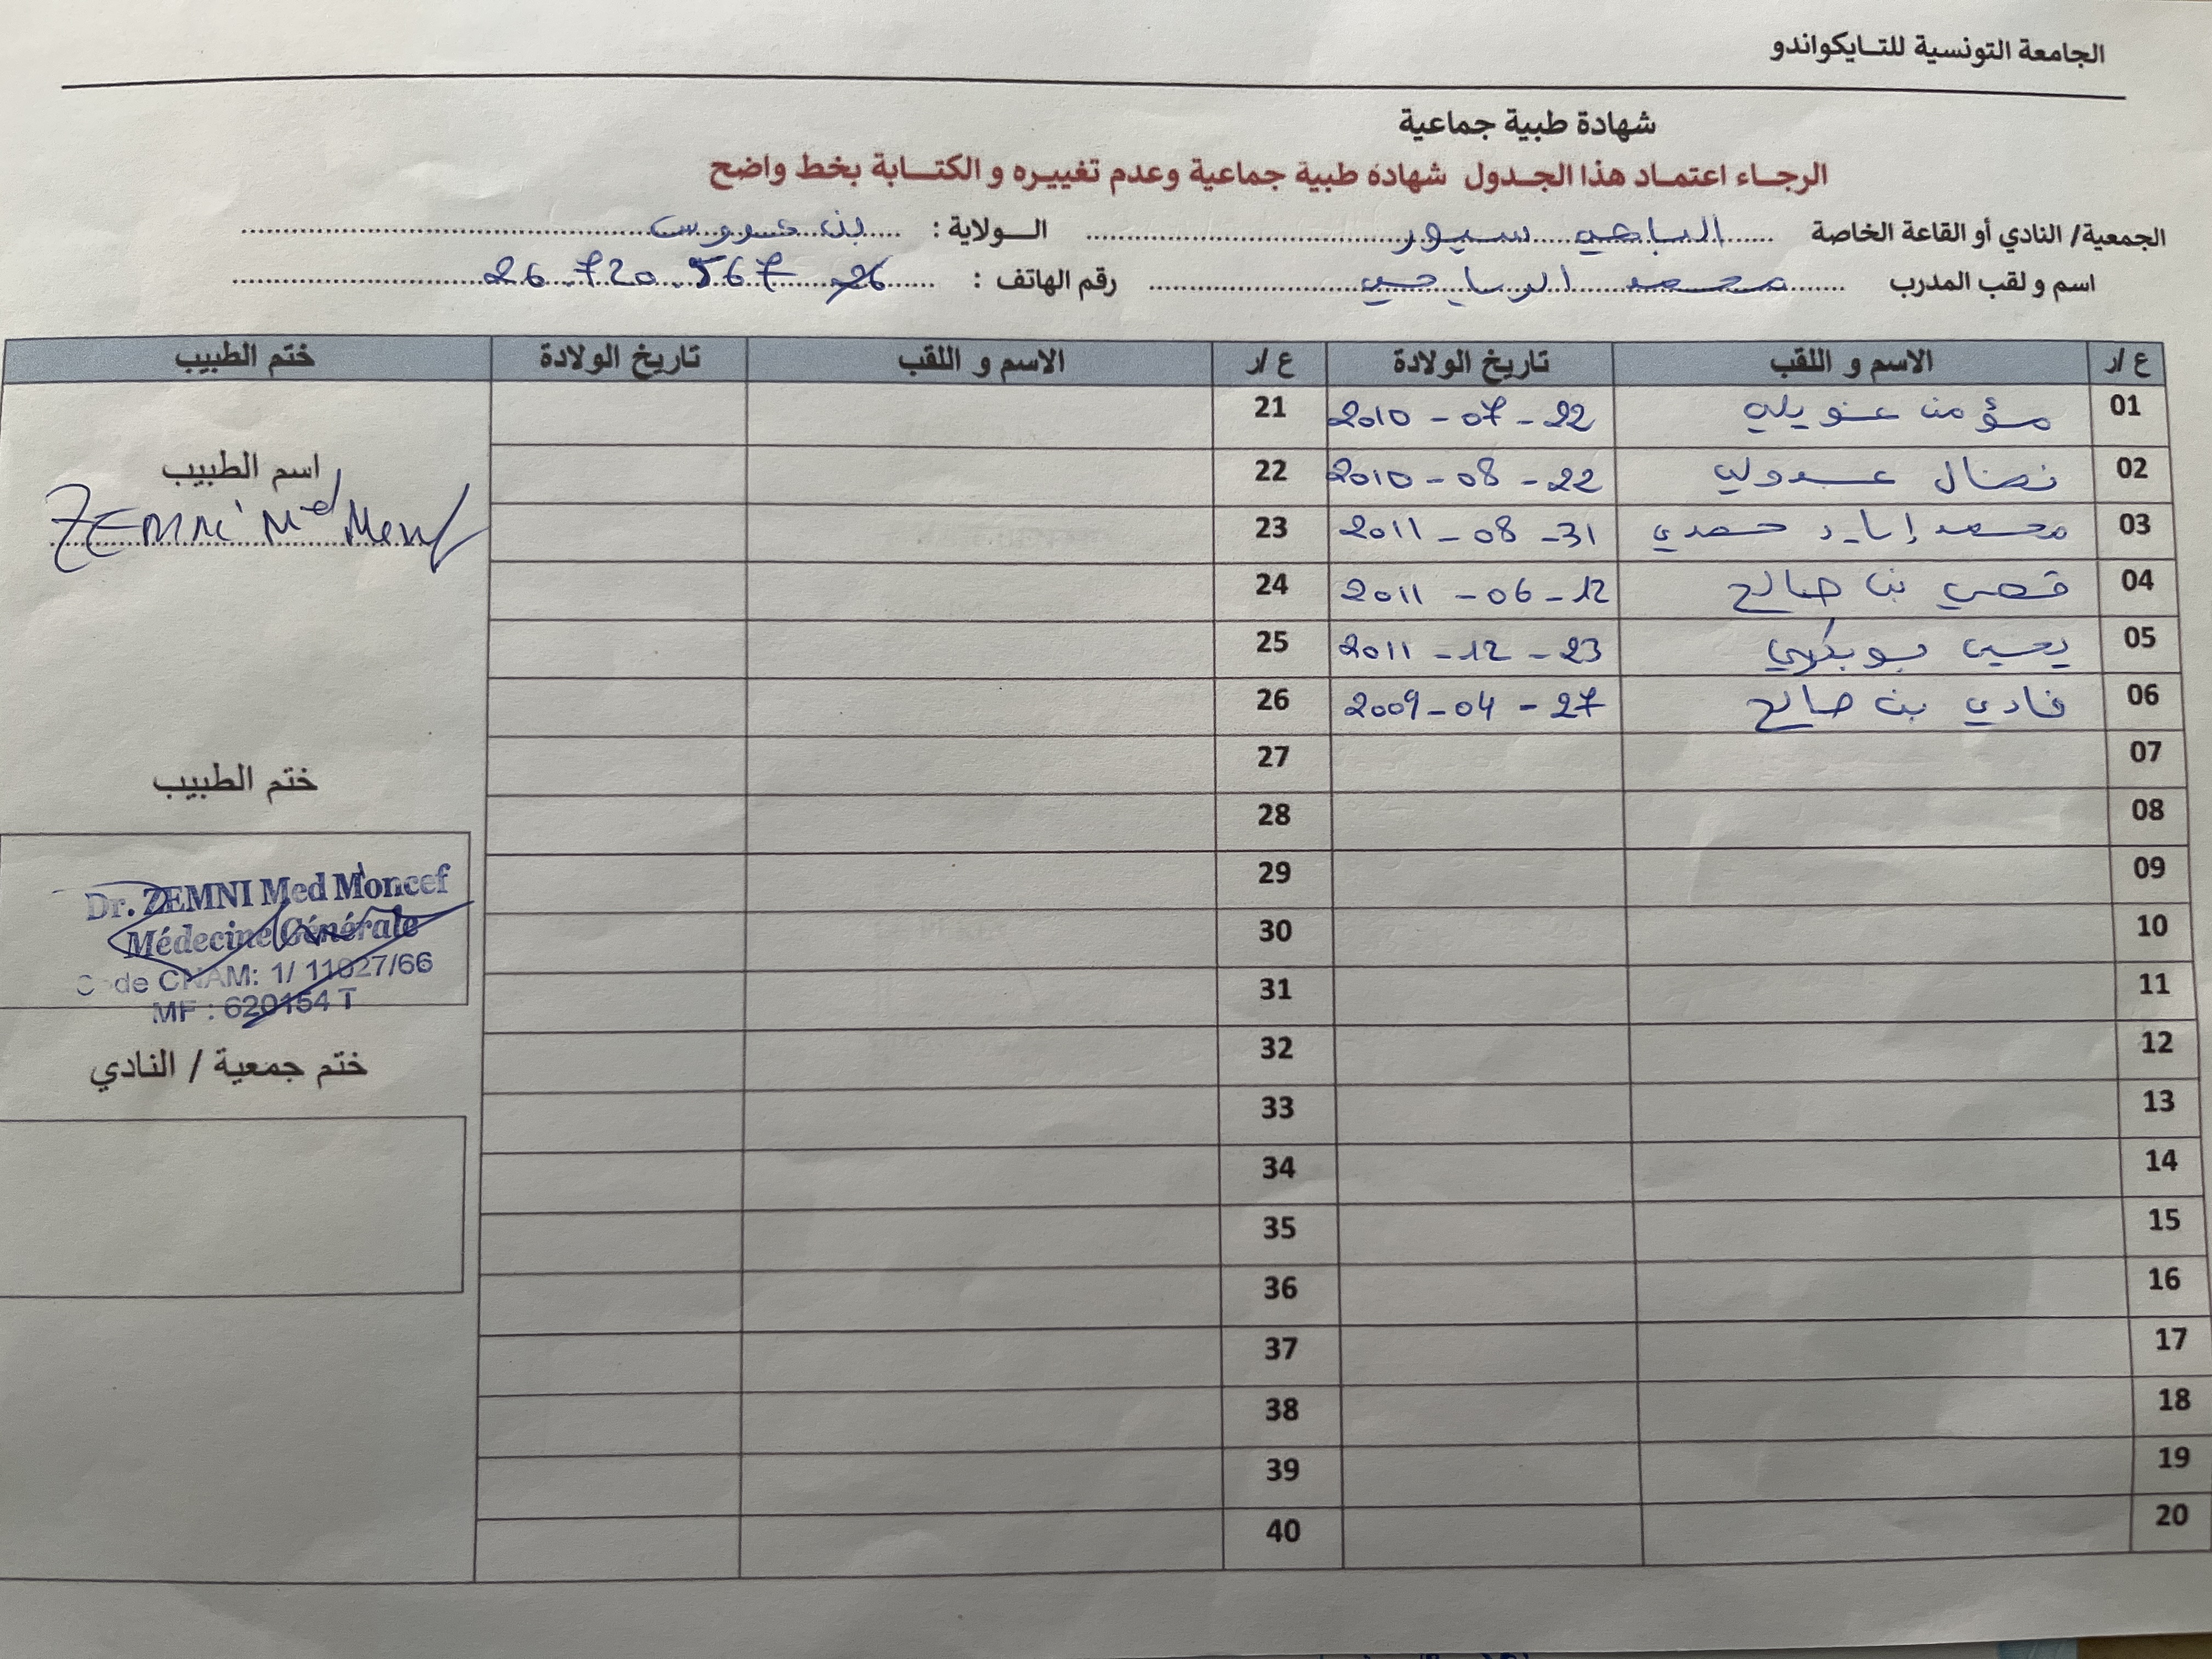 الجامعة التونسية للتايكواندو
شهادة طبية جماعية
الرجاء اعتماد هذا الجدول شهادة طبية جماعية وعدم تغييره و الكتابة بخط واضح
الجمعية/ النادي أو القاعة الخاصة الباجي سبور الولاية : بن عروس
اسم و لقب المدرب محمد الرياحي رقم الهاتف : 26.720.567
ع/ر الاسم و اللقب تاريخ الولادة ع/ر الاسم و اللقب تاريخ الولادة ختم الطبيب
01 مؤمن عويلي 2010 - 07 - 22 21
02 نضال عبدولي 2010 - 08 - 22 22
03 محمد إياد حمدي 2011 - 08 - 31 23
04 قصي بن صالح 2011 - 06 - 12 24
05 يحيى بوبكري 2011 - 12 - 23 25
06 فادي بن صالح 2009 - 04 - 27 26
07 27
08 28
09 29
10 30
11 31
12 32
13 33
14 34
15 35
16 36
17 37
18 38
19 39
20 40
اسم الطبيب
ZEMNI Md
ختم الطبيب
Dr. ZEMNI Med Moncef
Médecine Générale
Code CNAM: 1/ 11027/66
MF : 620154 T
ختم جمعية / النادي